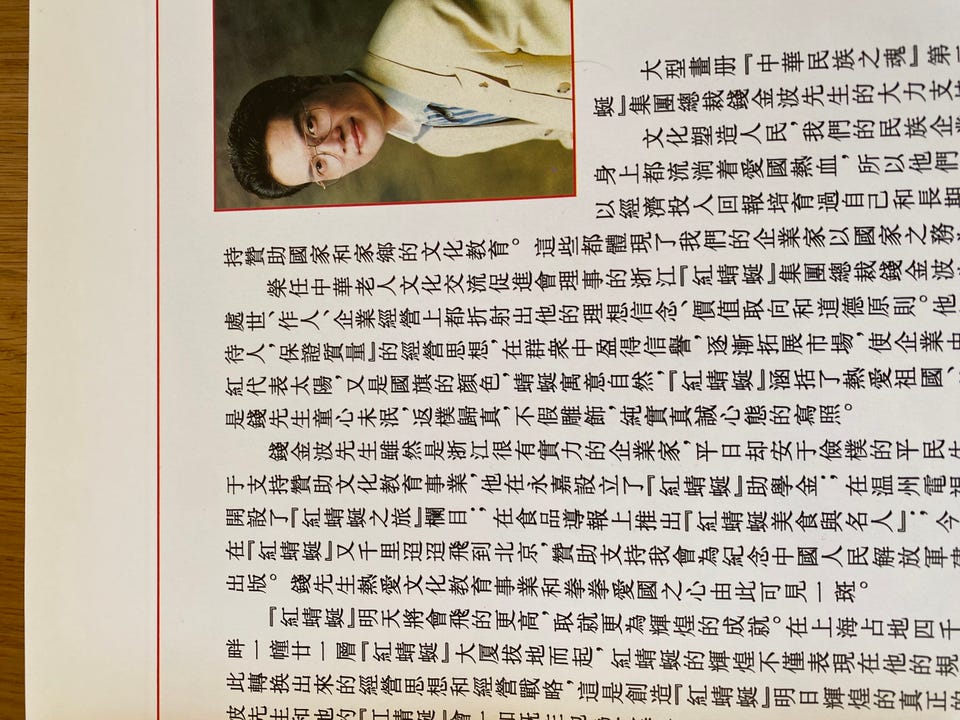 大型畫册『中華民族之魂』第
蜓』集團總裁錢金波先生的大力支持
文化塑造人民，我們的民族企業
身上都流淌着愛國熱血，所以他們
以經濟投入回報培育過自己和長期
持贊助國家和家鄉的文化教育。這些都體現了我們的企業家以國家之務為
榮任中華老人文化交流促進會理事的浙江『紅蜻蜓』集團總裁錢金波
處世、作人、企業經營上都折射出他的理想信念、價值取向和道德原則。他
待人，保證質量』的經營思想，在群衆中盈得信譽，逐漸拓展市場，使企業由
紅代表太陽，又是國旗的顏色，蜻蜓寓意自然，『紅蜻蜓』涵括了熱愛祖國、
是錢先生童心未泯，返樸歸真，不假雕飾，純實真誠心態的寫照。
錢金波先生雖然是浙江很有實力的企業家，平日却安于儉樸的平民生
于支持贊助文化教育事業，他在永嘉設立了『紅蜻蜓』助學金；在温州電視
開設了『紅蜻蜓之旅』欄目；在食品導報上推出『紅蜻蜓美食與名人』；今
在『紅蜻蜓』又千里迢迢飛到北京，贊助支持我會為紀念中國人民解放軍建
出版。錢先生熱愛文化教育事業和拳拳愛國之心由此可見一斑。
『紅蜻蜓』明天將會飛的更高，取就更為輝煌的成就。在上海占地四千
畔一幢廿一層『紅蜻蜓』大厦拔地而起，紅蜻蜓的輝煌不僅表現在他的規
此轉换出來的經營思想和經營戰略，這是創造『紅蜻蜓』明日輝煌的真正的
波先生和他的『紅蜻蜓』會一如既